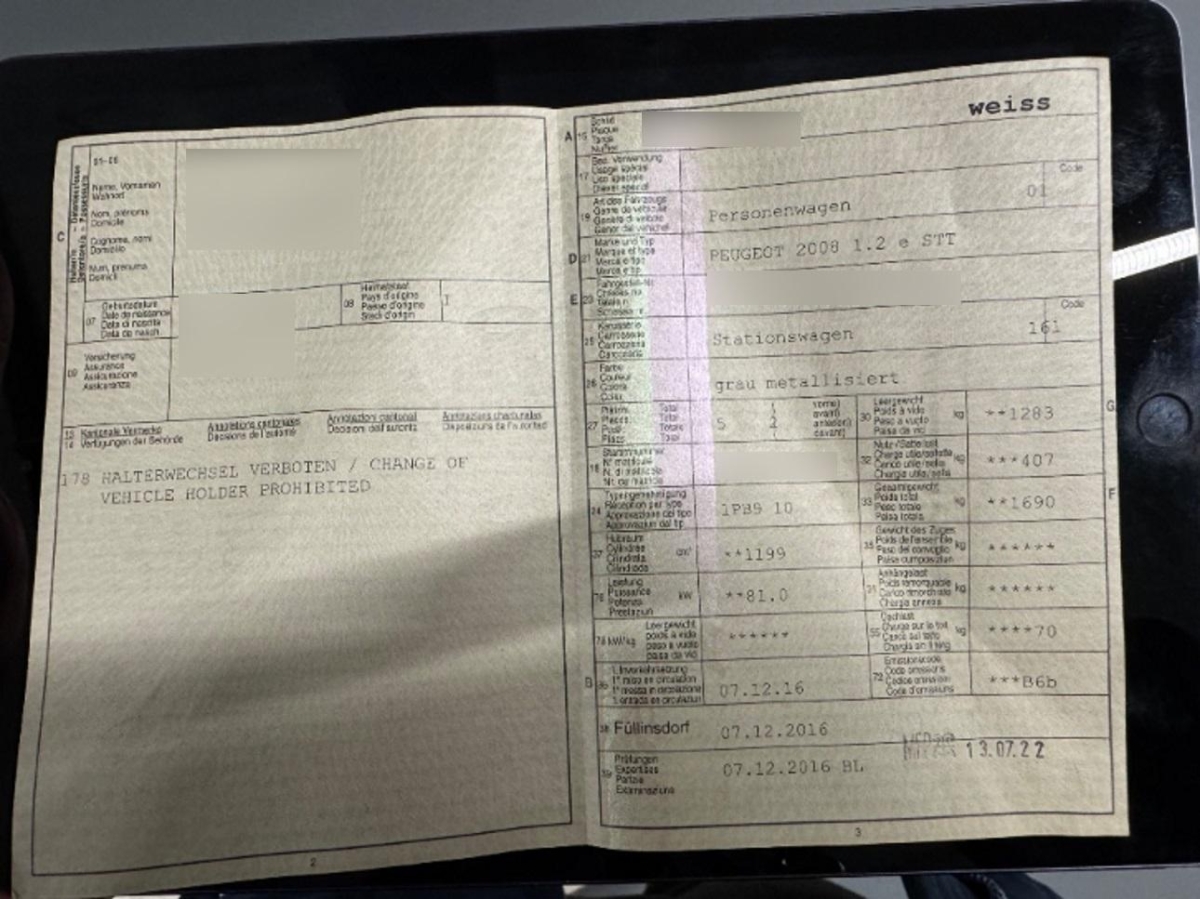 01-06
Name, Vornamen
Wohnort
C
Nom, prénoms
Domicile
Cognome, nomi
Domicilio
Num, prenums
Domicil
07
Geburtsdatum
Date de naissance
Data di nascita
Data da nasch.
08
Heimatstaat
Pays d'origine
Paese d'origine
Stadi d'origin
I
09
Versicherung
Assurance
Assicurazione
Assicuranza
13 Kantonale Vermerke
14 Verfügungen der Behörde
Annotations cantonales
Décisions de l'autorité
Annotazioni cantonali
Decisioni dell'autorità
Annotaziuns chantunalas
Disposiziuns da l'autoritad
178 HALTERWECHSEL VERBOTEN / CHANGE OF
VEHICLE HOLDER PROHIBITED
2
weiss
A
15
Schild
Plaque
Targa
Numer
17
Bes. Verwendung
Usage spécial
Uso speciale
Diever spezial
Code
19
Art des Fahrzeugs
Genre de véhicule
Genere di veicolo
Gener dal vehichel
Personenwagen
01
D
21
Marke und Typ
Marque et type
Marca e tipo
Marca e tip
PEUGEOT 2008 1.2 e STT
E
23
Fahrgestell-Nr.
Châssis no.
Telaio n.
Schassis nr.
Code
25
Karosserie
Carrosserie
Carrozzeria
Carrossaria
Stationswagen
161
26
Farbe
Couleur
Colore
Colur
grau metallisiert
27
Plätze Total
Places Total
Posti Totale
Plazs Total
5
2
vorne)
avant)
anteriori)
davant)
30
Leergewicht
Poids à vide
Peso a vuoto
Paisa da vid
kg
**1283
G
18
Stammnummer
N° matricule
N. di matricola
Nr. da matricla
32
Nutz-/Sattellast
Charge utile/sellette
Carico utile/sella
Chargia utila/sella
kg
***407
24
Typengenehmigung
Réception par type
Approvazione del tipo
Approvaziun dal tip
1PB9 10
33
Gesamtgewicht
Poids total
Peso totale
Paisa totala
kg
**1690
F
37
Hubraum
Cylindrée
Cilindrata
Cilindrada
cm³
**1199
35
Gewicht des Zuges
Poids de l'ensemble
Peso del convoglio
Paisa cumposiziun
kg
******
76
Leistung
Puissance
Potenza
Prestaziun
kW
**81.0
31
Anhängelast
Poids remorquable
Carico rimorchiato
Chargia annexa
kg
******
78 kW/kg
Leergewicht
poids à vide
peso a vuoto
paisa da vid
******
55
Dachlast
Charge sur le toit
Carico sul tetto
Chargia sin il tetg
kg
****70
B
36
1. Inverkehrsetzung
1re mise en circulation
1a messa in circolazione
1. entrada en circulaziun
07.12.16
72
Emissionscode
Code émissions
Codice emissioni
Code d'emissiuns
***B6b
38 Füllinsdorf
07.12.2016
13.07.22
39
Prüfungen
Expertises
Perizie
Examinaziuns
07.12.2016 BL
3